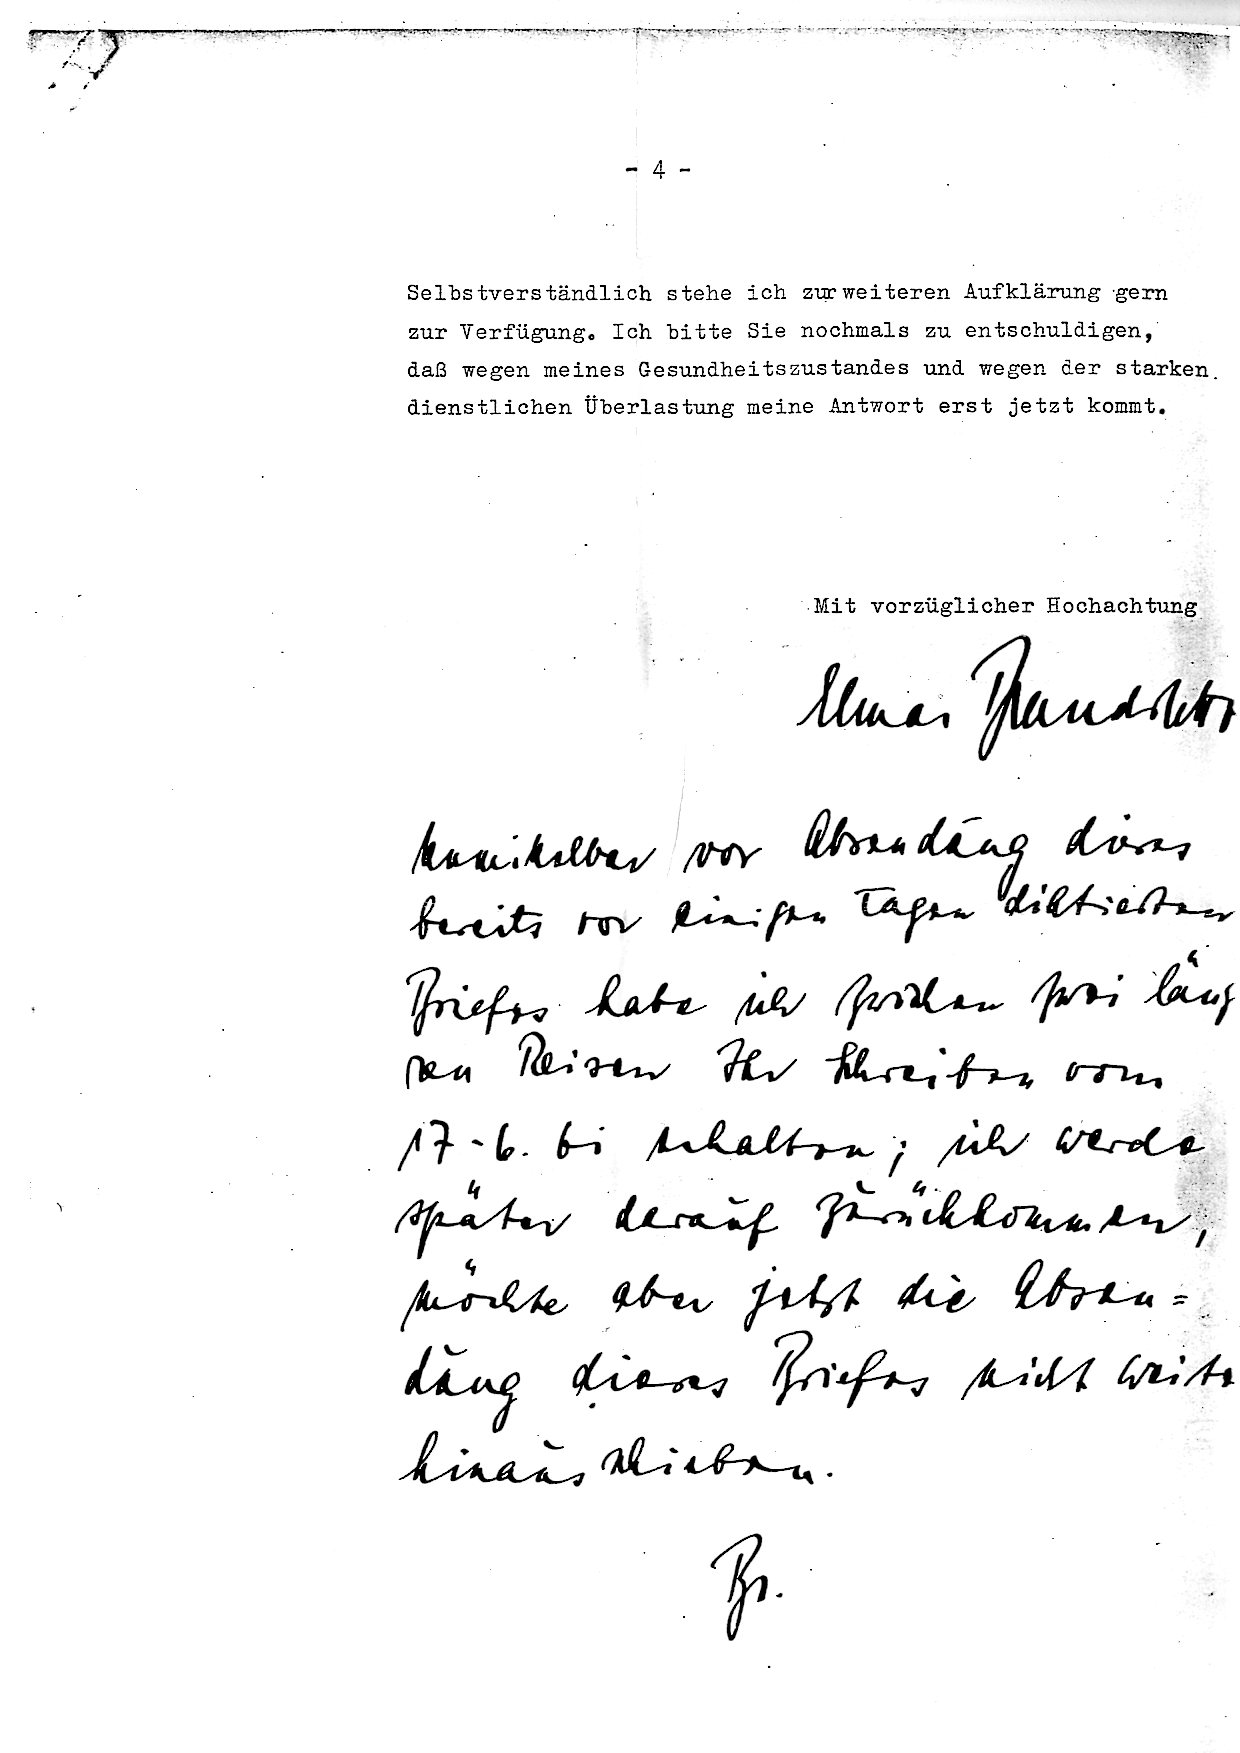 - 4 -
Selbstverständlich stehe ich zur weiteren Aufklärung gern
zur Verfügung. Ich bitte Sie nochmals zu entschuldigen,
daß wegen meines Gesundheitszustandes und wegen der starken
dienstlichen Überlastung meine Antwort erst jetzt kommt.
Mit vorzüglicher Hochachtung
Elmar Brandstett
Unmittelbar vor Absendung dieses
bereits vor einigen Tagen diktierten
Briefes habe ich zwischen zwei läng
ren Reisen Ihr Schreiben vom
17.6. erhalten; ich werde
später darauf zurückkommen,
möchte aber jetzt die Absen=
dung dieses Briefes nicht weite
hinausschieben.
Br.